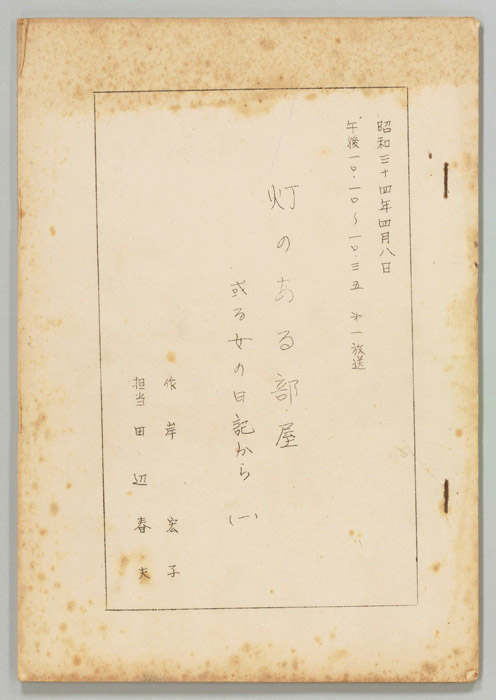 昭和三十四年四月八日
午後一〇・一〇〜一〇・三五 第一放送
灯のある部屋
或る女の日記から (一)
作 岸 宏子
担当 田辺春夫